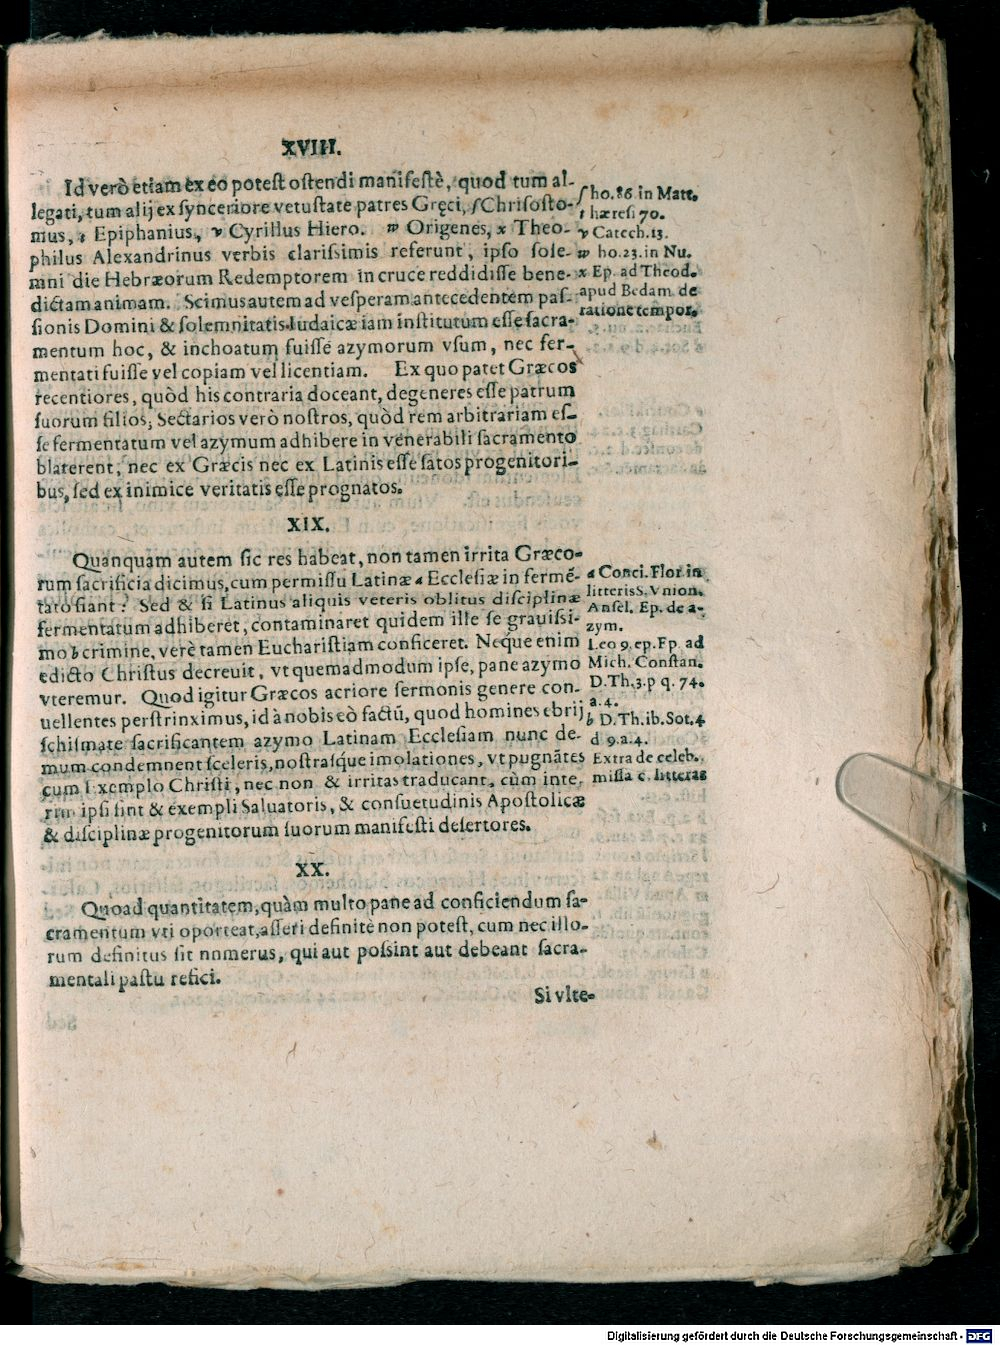 XVIII.
Id verò etiam ex eo potest ostendi manifestè, quod tum al-
legati, tum alij ex synceriore vetustate patres Gręci, ſ Chrisosto-
mus, t Epiphanius, v Cyrillus Hiero. w Origenes, x Theo-
philus Alexandrinus verbis clarissimis referunt, ipso sole-
mni die Hebræorum Redemptorem in cruce reddidisse bene-
dictam animam. Scimus autem ad vesperam antecedentem pas-
sionis Domini & solemnitatis Iudaicæ iam institutum esse sacra-
mentum hoc, & inchoatum fuisse azymorum vsum, nec fer-
mentati fuisse vel copiam vel licentiam. Ex quo patet Græcos
recentiores, quòd his contraria doceant, degeneres esse patrum
suorum filios; Sectarios verò nostros, quòd rem arbitrariam es-
se fermentatum vel azymum adhibere in venerabili sacramento
blaterent, nec ex Græcis nec ex Latinis esse satos progenitori-
bus, sed ex inimice veritatis esse prognatos.
ſ ho. 86 in Matt.
t hæresi 70.
v Catech. 13.
w ho. 23. in Nu.
x Ep. ad Theod.
apud Bedam de
ratione tempor.
XIX.
Quanquam autem sic res habeat, non tamen irrita Græco-
rum sacrificia dicimus, cum permissu Latinæ a Ecclesiæ in fermē-
tato fiant: Sed & si Latinus aliquis veteris oblitus disciplinæ
fermentatum adhiberet, contaminaret quidem ille se grauissi-
mo b crimine, verè tamen Euchariștiam conficeret. Neque enim
edicto Christus decreuit, vt quemadmodum ipse, pane azymo
vteremur. Quod igitur Græcos acriore sermonis genere con-
uellentes perstrinximus, id à nobis eò factũ, quod homines ebrij
schismate sacrificantem azymo Latinam Ecclesiam nunc de-
mum condemnent sceleris, nostrasq́ue imolationes, vt pugnātes
cum Exemplo Christi, nec non & irritas traducant, cùm inte-
rim ipsi sint & exempli Saluatoris, & consuetudinis Apostolicæ
& disciplinæ progenitorum suorum manifesti desertores.
a Conci. Flor in
litteris S. Vnion.
Ansel. Ep. de a-
zym.
Leo 9. ep. Fp. ad
Mich. Constan.
D. Th. 3. p q. 74.
a. 4.
b D. Th. ib. Sot. 4
d 9. a. 4.
Extra de celeb.
missa c. litteras
XX.
Quoad quantitatem, quàm multo pane ad conficiendum sa-
cramentum vti oporteat, asseri definitè non potest, cum nec illo-
rum definitus sit numerus, qui aut possint aut debeant sacra-
mentali pastu refici.
Si vlte-
Digitalisierung gefördert durch die Deutsche Forschungsgemeinschaft - DFG